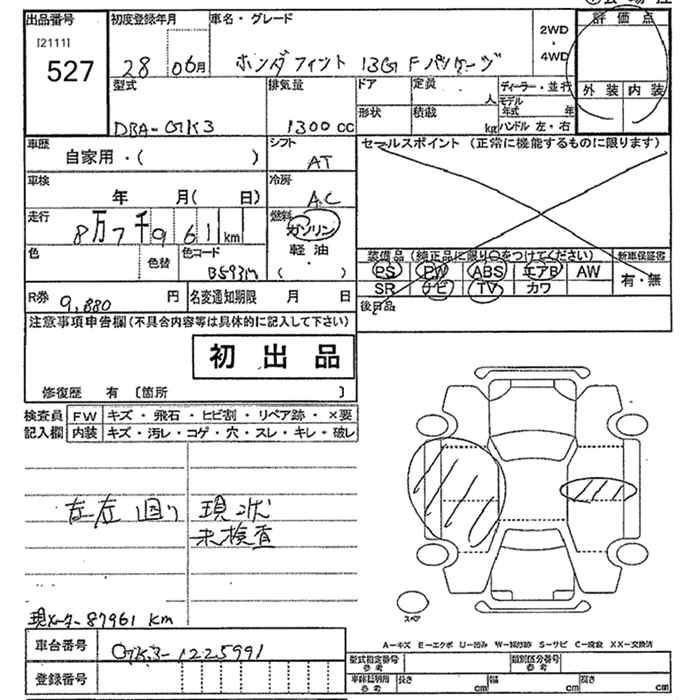 出品番号
[2111]
527
初度登録年月
28 06月
車名・グレード
ホンダ フィット 13G Fパッケージ
2WD
・
4WD
評価点
外装 内装
型式
DBA-GK3
排気量
1300 cc
ドア
形状
定員
人
積載
kg
ディーラー・並行
モデル年式 年
ハンドル 左・右
車歴
自家用・( )
シフト
AT
セールスポイント (正常に機能するものに限ります)
車検
年 月( 日)
冷房
A.C
走行
8万7千961km
燃料
ガソリン
軽油
・
( )
色
色替
色コード
B593M
装備品 (純正品に限り○をつけてください)
PS PW ABS エアB AW
SR ナビ TV カワ
新車保証書
有・無
後日品
R券
9,880 円
名変通知期限 月 日
注意事項申告欄(不具合内容等は具体的に記入して下さい)
初出品
修復歴 有 〔箇所 〕
検査員記入欄
FW キズ・飛石・ヒビ割・リペア跡・×要
内装 キズ・汚レ・コゲ・穴・スレ・キレ・破レ
現状
未検査
現メーター87961 km
スペア
A-キズ E-エクボ U-凹み W-補修跡 S-サビ C-腐食 XX-交換済
車台番号
GK3-1225991
登録番号
型式指定番号 参考
類別区分番号 参考
車検証別用 参考
長さ cm
幅 cm
高さ cm